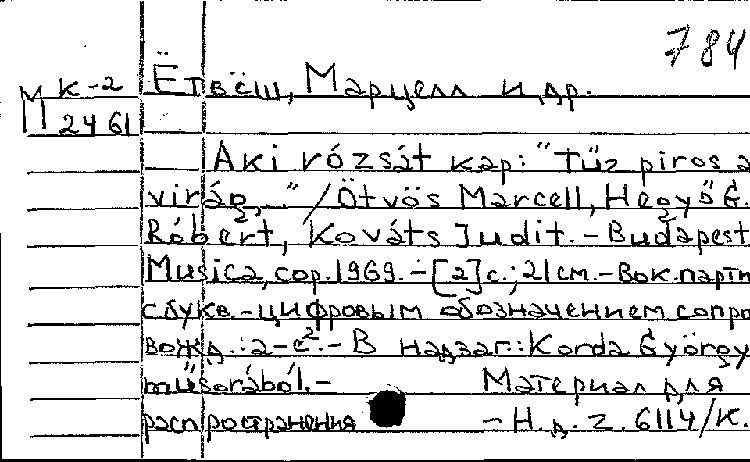 784
К-2 Ётвёш, Марцелл и др.
М 2461
Aki rózsát kap: "Tűz piros a
virág, .." / Ötvös Marcell, Hegyő G.
Róbert, Kováts Judit. - Budapest
Musica, cop. 1969. - [2] с.; 21 см. - Вок. парти
с букв. - цифровым обозначением сопро
вожд.: 2-е². - В надзаг.: Korda György
műsorából. - Материал для
распространения - Н.д. Z. 6114/K.